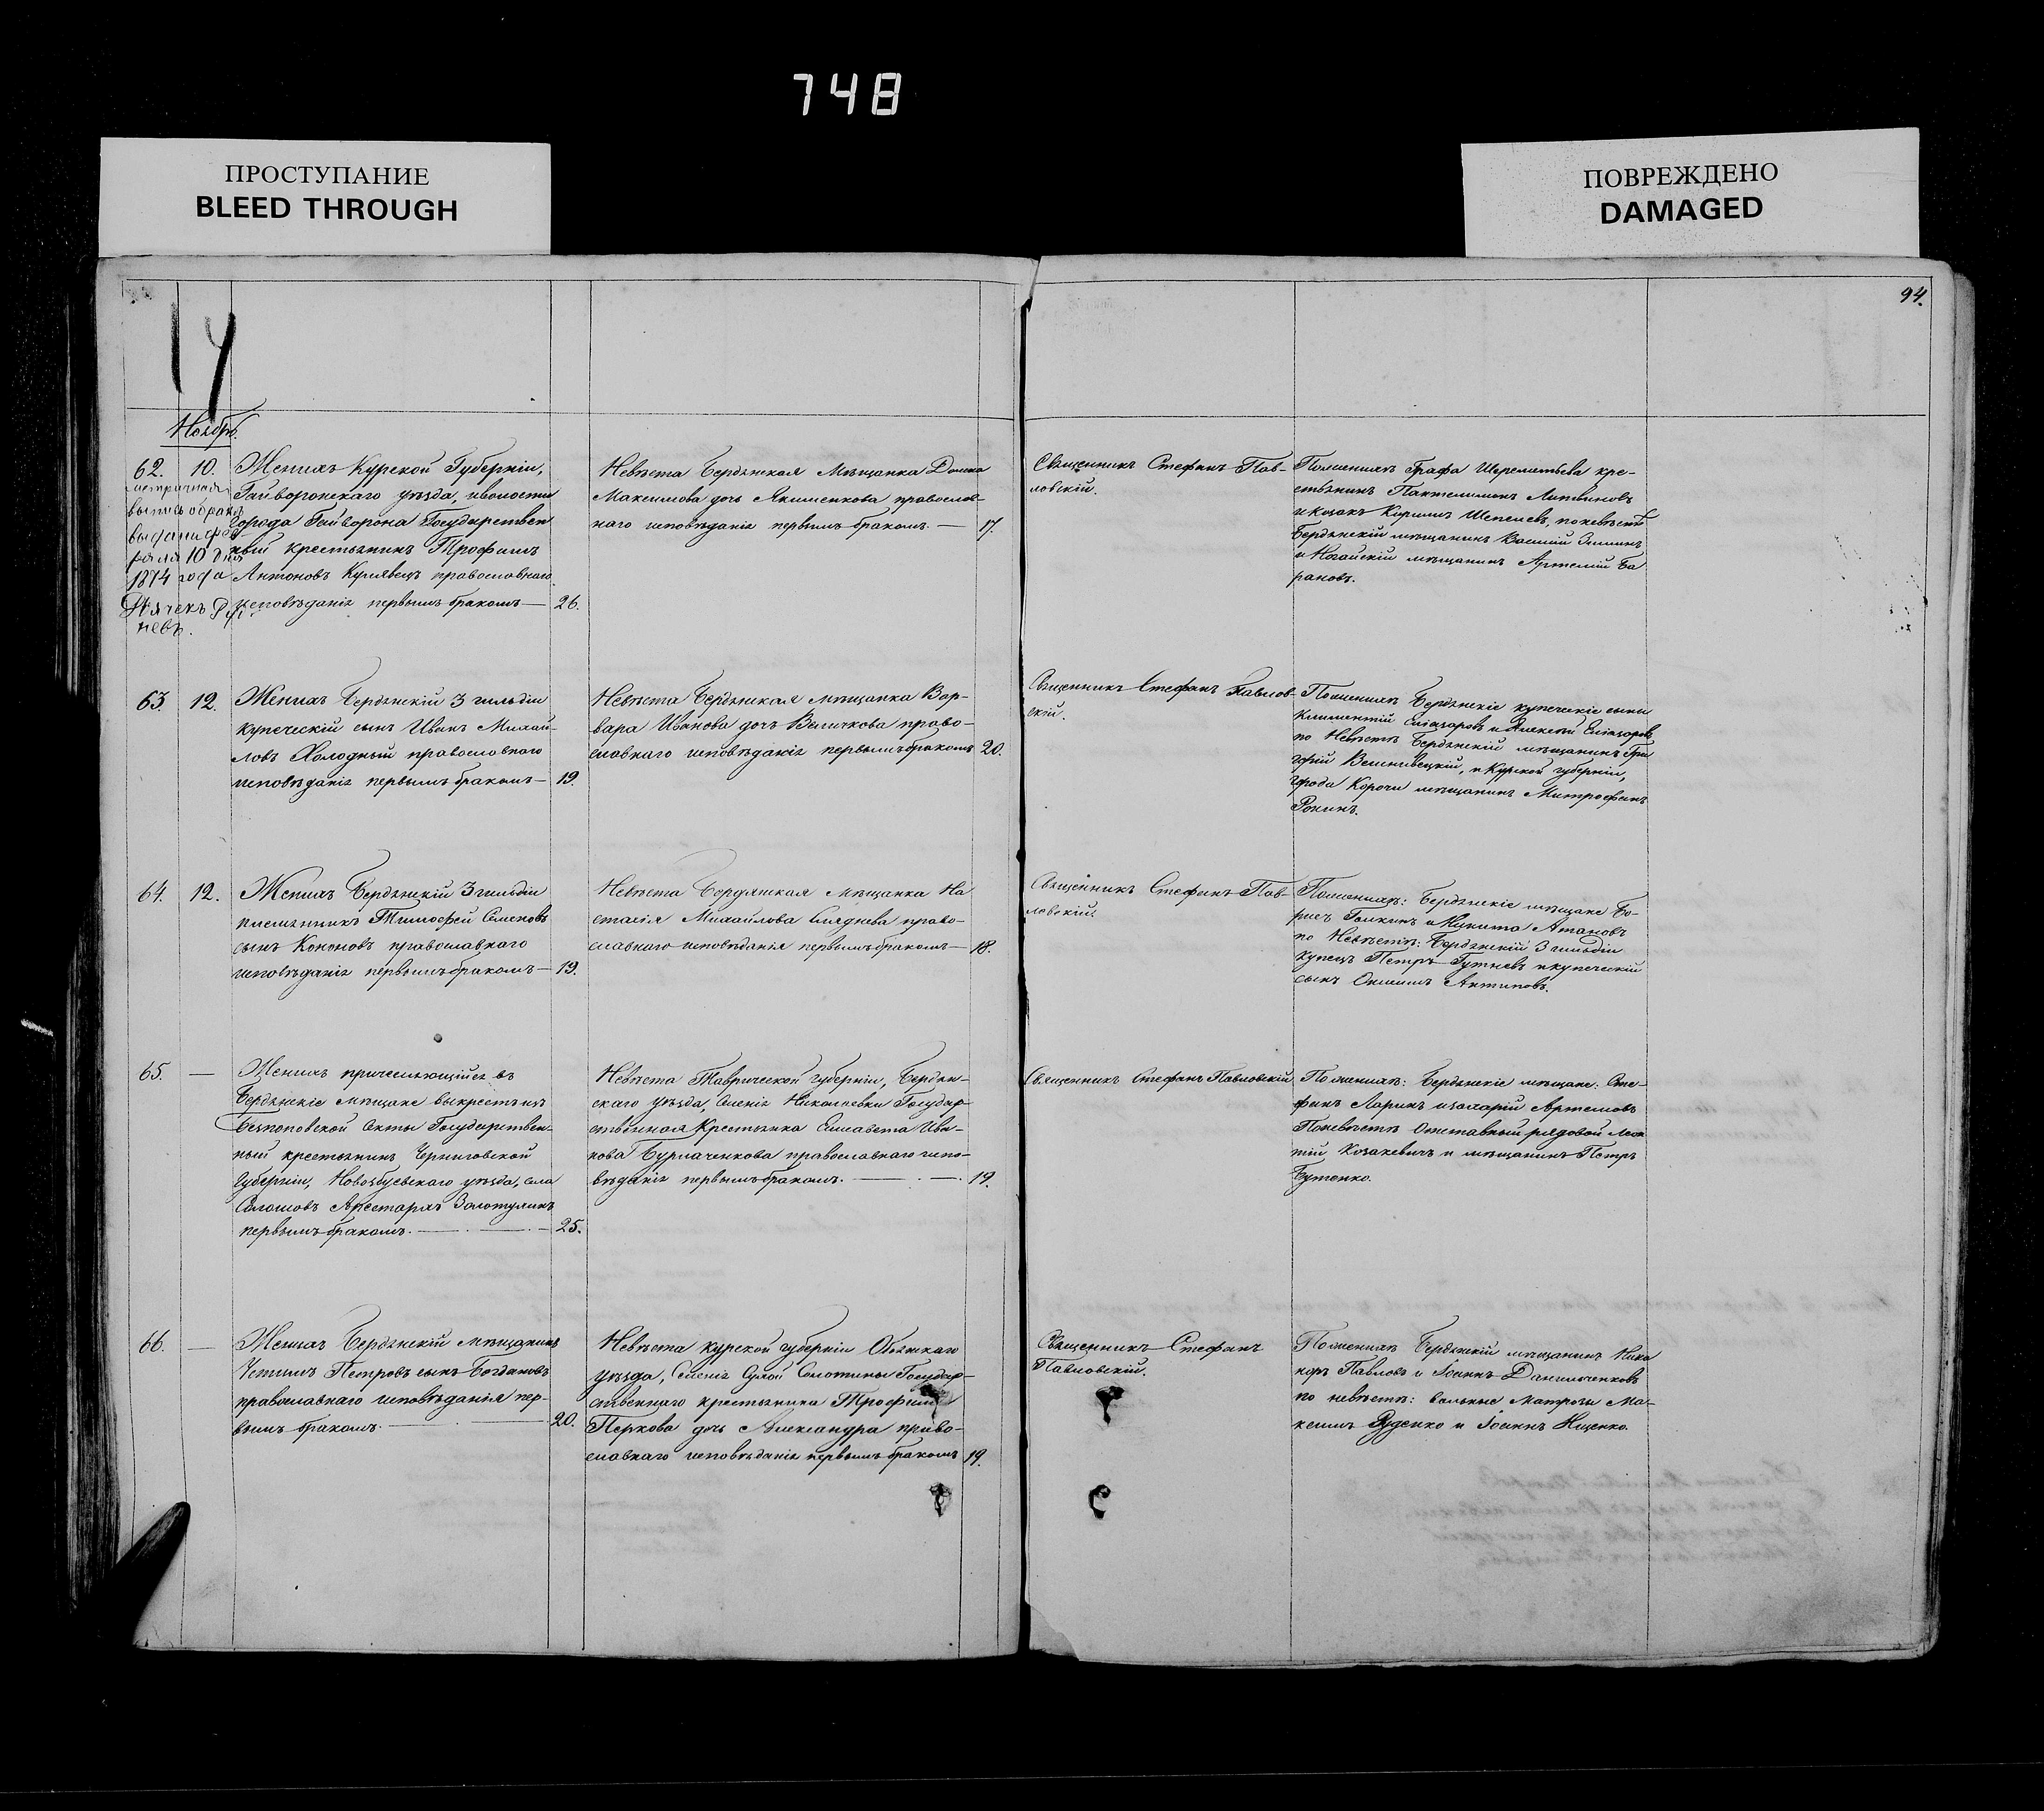 748
ПРОСТУПАНИЕ
BLEED THROUGH
ПОВРЕЖДЕНО
DAMAGED
94.
14
Ноябрь.
62. 10.
выпись о бракѣ
выдана фев-
раля 10 дня
1874 года
Дьячекъ
невъ.
Женихъ Курской Губерніи,
Гайворонскаго уѣзда, и волости
города Гайворона Государствен
ный крестьянинъ Трофимъ
Антоновъ Кулявецъ православнаго
исповѣданія первымъ бракомъ — 26.
Невѣста Бердянская Мѣщанка Домна
Максимова дочь Якименкова православ-
наго исповѣданія первымъ бракомъ — 17.
Священникъ Стефанъ Пав-
ловскій.
По женихѣ Графа Шереметьева кре-
стьянинъ Пантелимонъ Литвиновъ
и козакъ Кирилъ Шепелевъ, по невѣстѣ
Бердянскій мѣщанинъ Василій Зиминъ
и Ногайскій мѣщанинъ Артемій Ба
рановъ.
63. 12.
Женихъ Бердянскій 3 гильдіи
купеческій сынъ Иванъ Михай-
ловъ Холодный православнаго
исповѣданія первымъ бракомъ — 19.
Невѣста Бердянская мѣщанка Вар-
вара Иванова дочь Величкова право-
славнаго исповѣданія первымъ бракомъ 20.
Священникъ Стефанъ Павлов-
скій.
По женихѣ Бердянскіе купеческіе сыны
Климентій Еліазаровъ и Алексѣй Еліазаровъ
по Невѣстѣ Бердянскій мѣщанинъ Гри
горій, и Курской губерніи,
города Корочи мѣщанинъ Митрофанъ
Ронинъ.
64. 12.
Женихъ Бердянскій 3 гильдіи
племянникъ Тимофей Семеновъ
сынъ Кононовъ православнаго
исповѣданія первымъ бракомъ — 19.
Невѣста Бердянская мѣщанка На
стасія Михайлова Слѣднева право-
славнаго исповѣданія первымъ бракомъ — 18.
Священникъ Стефанъ Пав-
ловскій.
По женихѣ: Бердянскіе мѣщане Бо-
рисъ Галкинъ и Никита Атановъ
по Невѣстѣ: Бердянскій 3 гильдіи
купецъ Петръ Гутневъ и купеческій
сынъ Онисимъ Антиповъ.
65. —
Женихъ причесляющійся въ
Бердянскіе мѣщане выкрестъ изъ
Безпоповской Секты Государствен-
ный крестьянинъ Черниговской
Губерніи, Новозбуевскаго уѣзда, села
Аристархъ Золотухинъ
первымъ бракомъ. — 25.
Невѣста Таврической губерніи, Бердян-
скаго уѣзда, Селенія Николаевки Государ
ственная Крестьянка Елисавета Ива-
нова Бурлаченкова православнаго испо-
вѣданія первымъ бракомъ. — 19.
Священникъ Стефанъ Павловскій
По женихѣ: Бердянскіе мѣщане: Сте-
фанъ Ларинъ и захарій Артемовъ
По невѣстѣ Отставный рядовой Леон
тій Козакевичъ и мѣщанинъ Петръ
Бутенко.
66. —
Женихъ Бердянскій мѣщанинъ
Устинъ Петровъ сынъ Богдановъ
православнаго исповѣданія пер-
вымъ бракомъ. — 20.
Невѣста курской губерніи Обоянскаго
уѣзда, Селенія Сухой Солотины Государ-
ственнаго крестьянина Трофима
Перкова дочь Александра право-
славнаго исповѣданія первымъ бракомъ 19.
Священникъ Стефанъ
Павловскій.
По женихѣ Бердянскій мѣщанинъ Ника
норъ Павловъ и Іоаннъ Данильченковъ
по невѣстѣ: вольные Матрозы Ма-
ксимъ Руденко и Іоаннъ Ищенко.